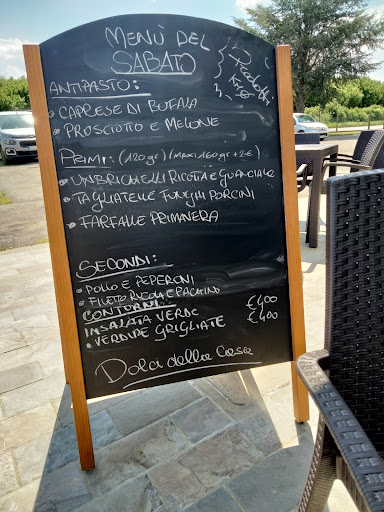 MENÙ DEL
SABATO
ANTIPASTO:
• CAPRESE DI BUFALA
• PROSCIUTTO E MELONE
PRIMI: (120gr) (MAXI 160gr +2€)
• UMBRICHELLI RICOTTA E GUANCIALE
• TAGLIATELLE FUNGHI PORCINI
• FARFALLE PRIMAVERA
SECONDI:
• POLLO E PEPERONI
• FILETTO RUCOLA E PACHINO
CONTORNI:
INSALATA VERDE €4,00
• VERDURE GRIGLIATE €4,00
Dolci della Casa